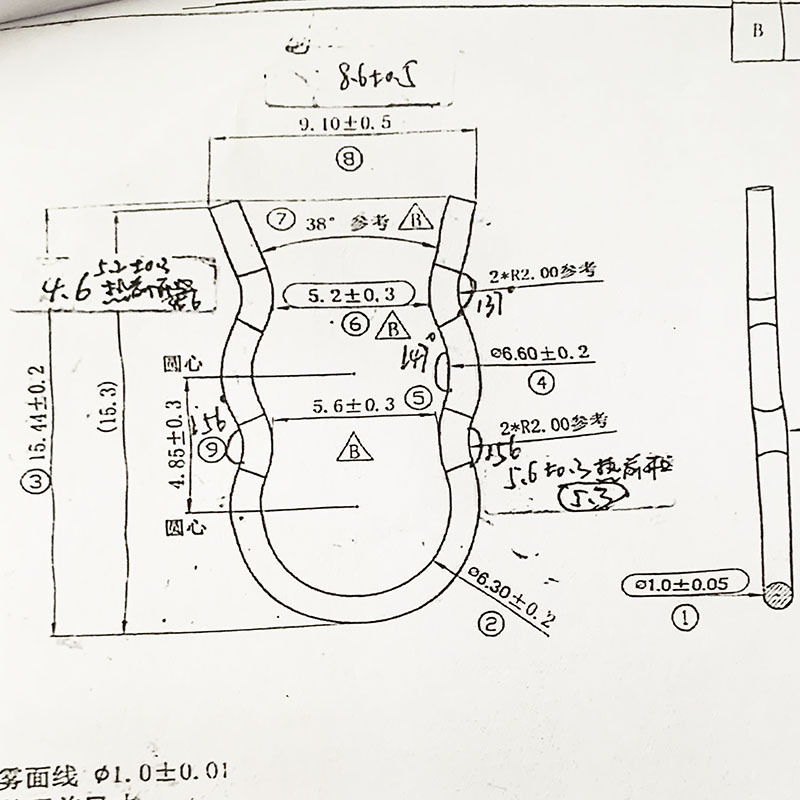 B
8.6±0.5
9.10±0.5
⑧
⑦ 38° 参考 B
5.2±0.3
4.6 热前
2*R2.00参考
137°
5.2±0.3
⑥ B
147°
ø6.60±0.2
④
圆心
③ 15.44±0.2
(15.3)
4.85±0.3
5.6±0.3 ⑤
2*R2.00参考
156°
⑨
156
B
5.6±0.3 热前
5.3
圆心
ø6.30±0.2
②
ø1.0±0.05
①
雾面线 Φ1.0±0.01